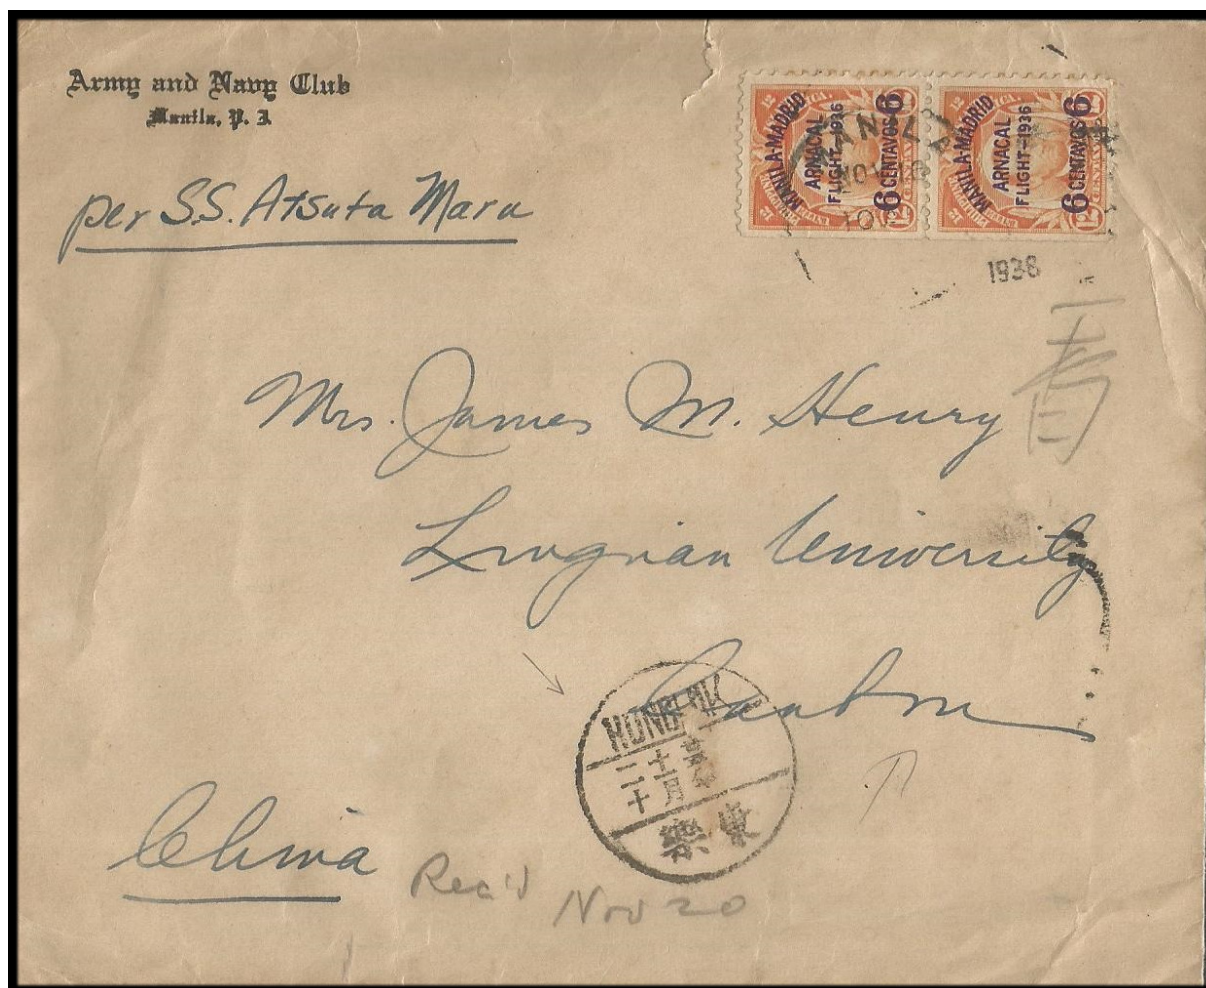 Army and Navy Club
Manila, P. I.
per S.S. Atsuta Maru
MANILA-MADRID
ARNACAL
FLIGHT-1936
6 CENTAVOS 6
MANILA-MADRID
ARNACAL
FLIGHT-1936
6 CENTAVOS 6
MANILA
NOV
1938
Mrs. James M. Henry
Lingnan University
Canton
HONGLOK
十一月
二十
樂東
China
Rec'd Nov 20